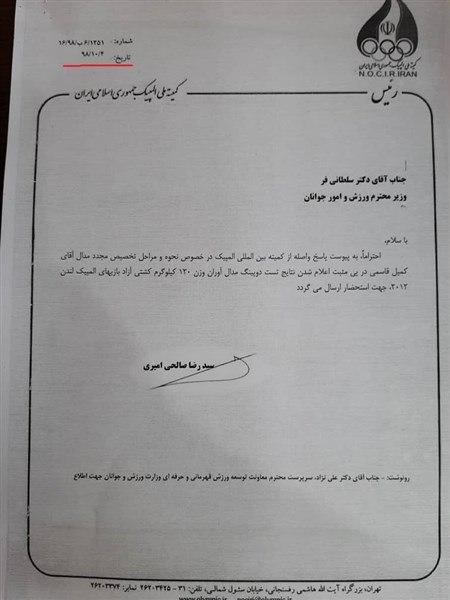 شماره: ۱۶/۹۸/ب/۶/۱۲۵۱
تاریخ: ۹۸/۱۰/۴
کمیته ملی المپیک جمهوری اسلامی ایران
N.O.C.I.R.IRAN
رئیس
کمیته ملی المپیک جمهوری اسلامی ایران
جناب آقای دکتر سلطانی فر
وزیر محترم ورزش و امور جوانان
با سلام،
احتراماً، به پیوست پاسخ واصله از کمیته بین المللی المپیک در خصوص نحوه و مراحل تخصیص مجدد مدال آقای
کمیل قاسمی در پی مثبت اعلام شدن نتایج تست دوپینگ مدال آوران وزن ۱۲۰ کیلوگرم کشتی آزاد بازیهای المپیک لندن
۲۰۱۲، جهت استحضار ارسال می گردد
سید رضا صالحی امیری
رونوشت: - جناب آقای دکتر علی نژاد، سرپرست محترم معاونت توسعه ورزش قهرمانی و حرفه ای وزارت ورزش و جوانان جهت اطلاع
تهران، بزرگراه آیت الله هاشمی رفسنجانی، خیابان سئول شمالی، تلفن: ۳۱ - ۲۶۲۰۳۴۲۵ نمابر: ۲۶۲۰۳۳۷۴